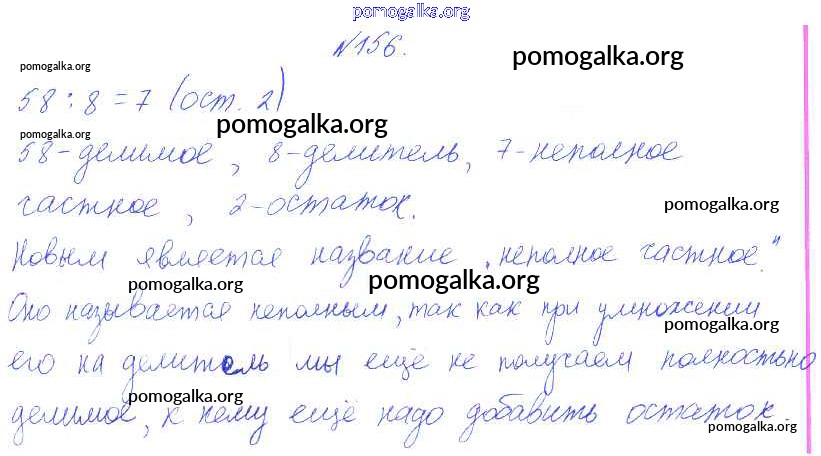 pomogalka.org
№156.
pomogalka.org
pomogalka.org
58 : 8 = 7 (ост. 2)
pomogalka.org
pomogalka.org
58-делимое, 8-делитель, 7-неполное
частное, 2-остаток.
pomogalka.org
Новым является название „неполное частное."
pomogalka.org
pomogalka.org
Оно называется неполным, так как при умножении
pomogalka.org
его на делитель мы ещё не получаем полностью
pomogalka.org
делимое, к нему ещё надо добавить остаток.
pomogalka.org